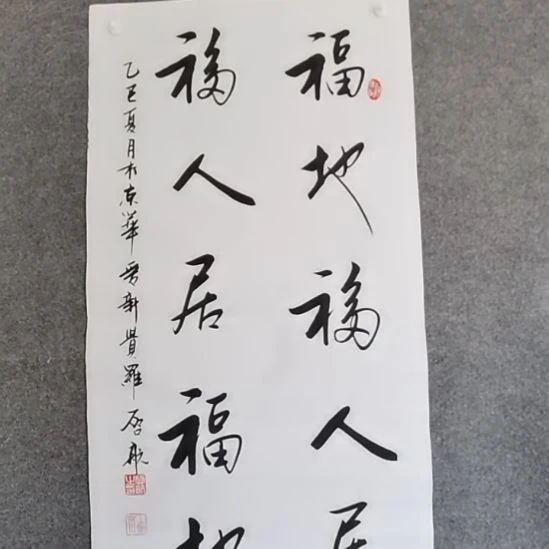 福地福人居
福人居福地
乙巳夏月於京華 新貴羅